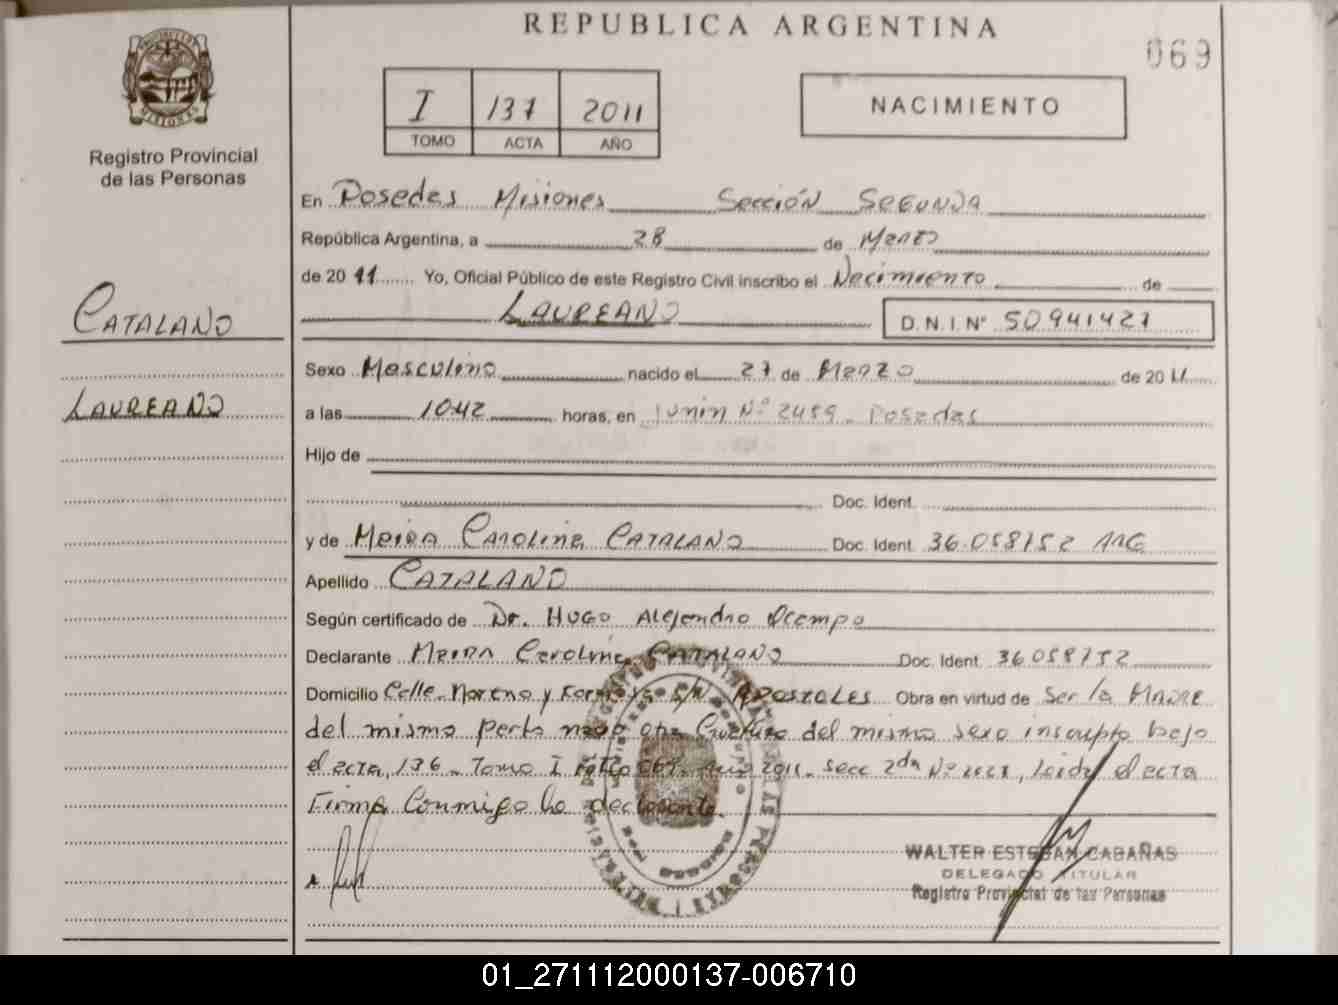 REPUBLICA ARGENTINA
069
PROVINCIA DE MISIONES
Registro Provincial
de las Personas
I 137 2011
TOMO ACTA AÑO
NACIMIENTO
En Posadas Misiones Sección Segunda
República Argentina, a 28 de Marzo
de 2011 Yo, Oficial Público de este Registro Civil inscribo el Nacimiento de
LAUREANO D.N.I.Nº 50941421
CATALANO
LAUREANO
Sexo Masculino nacido el 27 de Marzo de 2011
a las 10:42 horas, en Junin Nº 2459 - Posadas
Hijo de
Doc. Ident.
y de Maira Carolina CATALANO Doc. Ident. 36.058752 ARG
Apellido CATALANO
Según certificado de Dr. Hugo Alejandro Ocampo
Declarante Maira Carolina CATALANO Doc. Ident. 36058752
Domicilio Calle Moreno y S/N APOSTOLES Obra en virtud de Ser la Madre
del mismo parto nació otra Criatura del mismo sexo inscripto bajo
el acta, 136 - Tomo I 2011 - secc 2da Leída el acta
Firma Conmigo la declarante.
WALTER ESTEBAN CABAÑAS
DELEGADO TITULAR
Registro Provincial de las Personas
01_271112000137-006710